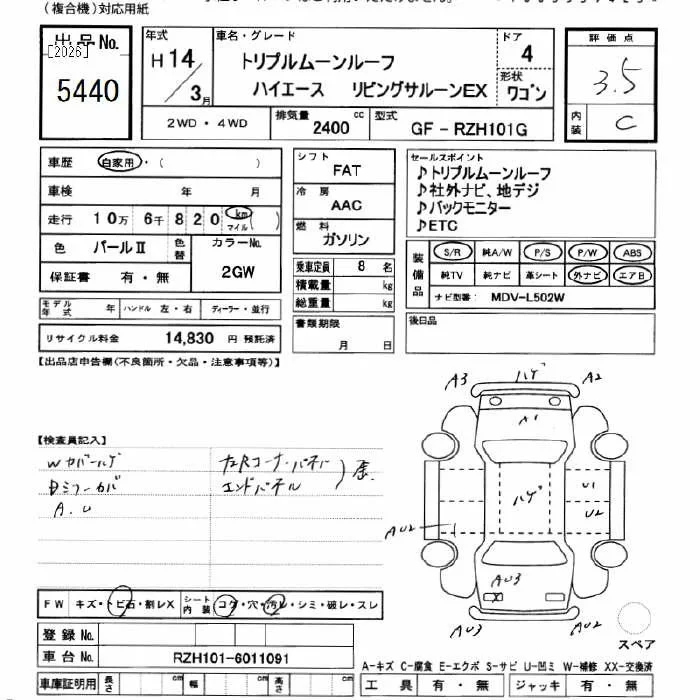 (複合機)対応用紙
出品No.
[2026]
5440
年式
H14/3月
車名・グレード
トリプルムーンルーフ
ハイエース リビングサルーンEX
ドア
4
形状
ワゴン
2WD・4WD
排気量
2400 cc
型式
GF - RZH101G
評価点
3.5
内装
C
車歴 自家用・( )
車検 年 月
走行 10万 6千 820 km マイル ( )
色 パールⅡ
色替
カラーNo.
2GW
保証書 有・無
モデル年式 年 ハンドル 左・右 ディーラー・並行
リサイクル料金 14,830 円 預託済
シフト
FAT
冷房
AAC
燃料
ガソリン
乗車定員 8 名
積載量 kg
総重量 kg
書類期限
月 日
セールスポイント
♪トリプルムーンルーフ
♪社外ナビ、地デジ
♪バックモニター
♪ETC
装備品
S/R 純A/W P/S P/W ABS
純TV 純ナビ 革シート 外ナビ エアB
ナビ型番: MDV-L502W
後日品
【出品店申告欄(不良箇所・欠品・注意事項等)】
【検査員記入】
Wカバーハゲ
Dミラーカバー
A.U
左Rコーナーパネル
エンドパネル
A3 ハゲ A2
A1
ハゲ
U1
U2
AU2
AU2
AU3
X
FW キズ・トビ石・割レX
シート内装 コゲ・穴・汚レ・シミ・破レ・スレ
登録No.
車台No. RZH101-6011091
車庫証明用 長さ cm 幅 cm 高さ cm
スペア
A-キズ C-腐食 E-エクボ S-サビ U-凹ミ W-補修 XX-交換済
工具 有・無 ジャッキ 有・無